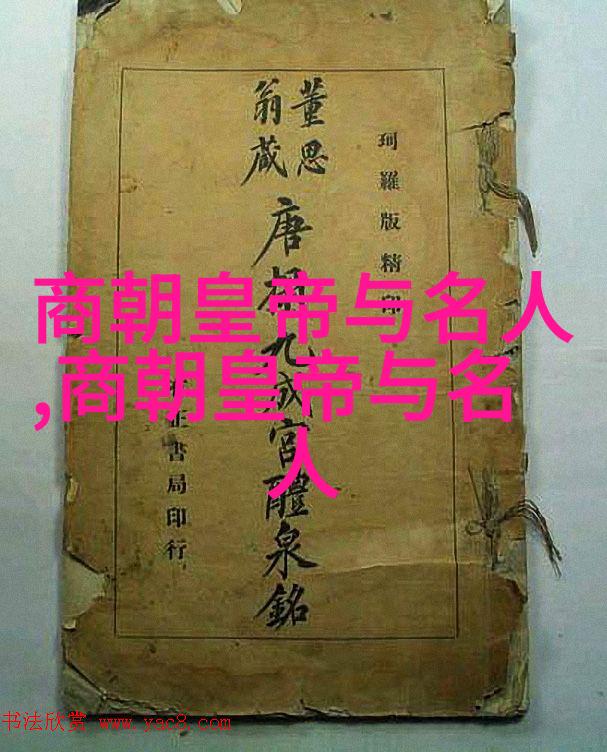 珂羅版精印
董思
翁藏
唐九成宮醴泉銘
正書局印行
商朝皇帝与名人
,商朝皇帝与名
人
书法欣赏 www.yac8.com